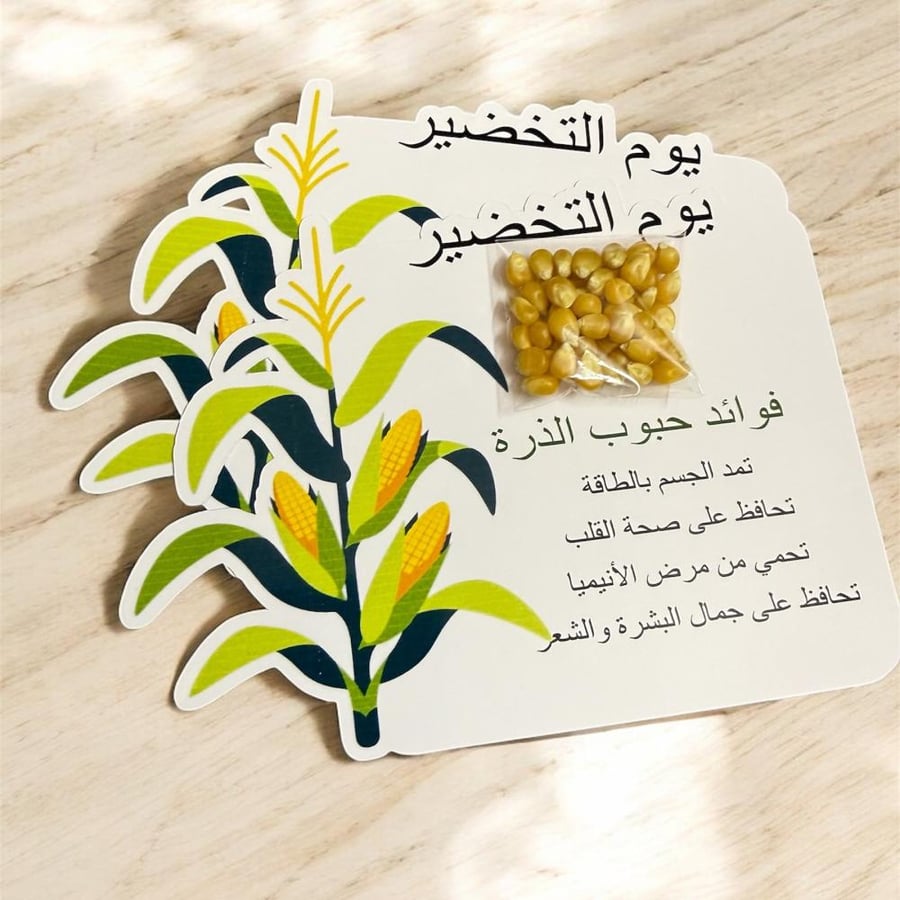 يوم التخضير
يوم التخضير
فوائد حبوب الذرة
تمد الجسم بالطاقة
تحافظ على صحة القلب
تحمي من مرض الأنيميا
تحافظ على جمال البشرة والشعر